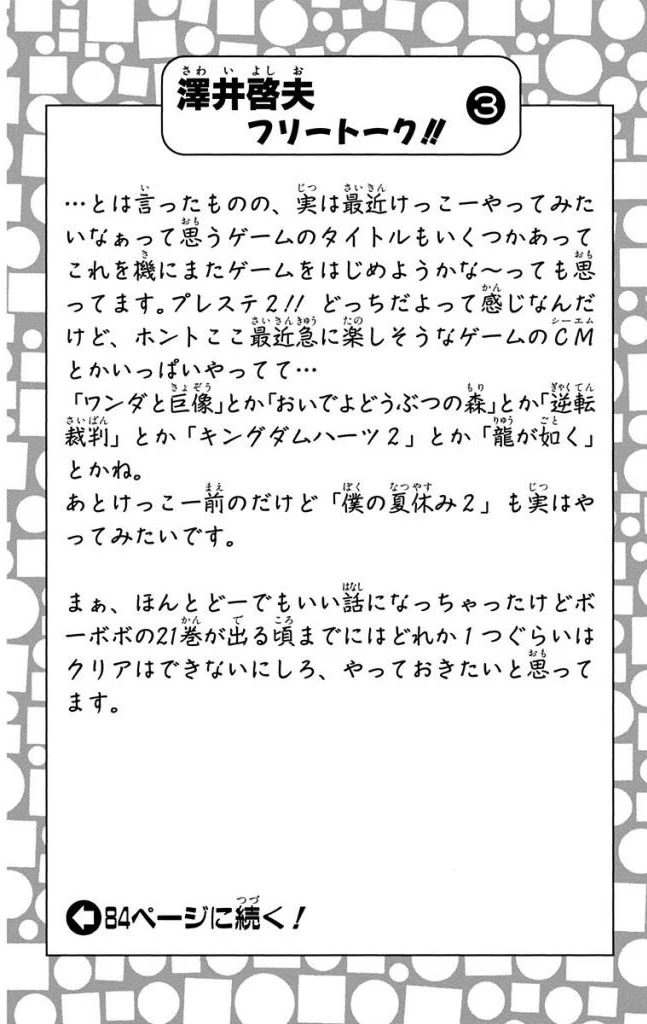 澤井啓夫
フリートーク!!
③
…とは言ったものの、実は最近けっこーやってみた
いなぁって思うゲームのタイトルもいくつかあって
これを機にまたゲームをはじめようかな〜っても思
ってます。プレステ2!! どっちだよって感じなんだ
けど、ホントここ最近急に楽しそうなゲームのCM
とかいっぱいやってて…
「ワンダと巨像」とか「おいでよどうぶつの森」とか「逆転
裁判」とか「キングダムハーツ2」とか「龍が如く」
とかね。
あとけっこー前のだけど「僕の夏休み2」も実はや
ってみたいです。
まぁ、ほんとどーでもいい話になっちゃったけどボ
ーボボの21巻が出る頃までにはどれか1つぐらいは
クリアはできないにしろ、やっておきたいと思って
ます。
84ページに続く!